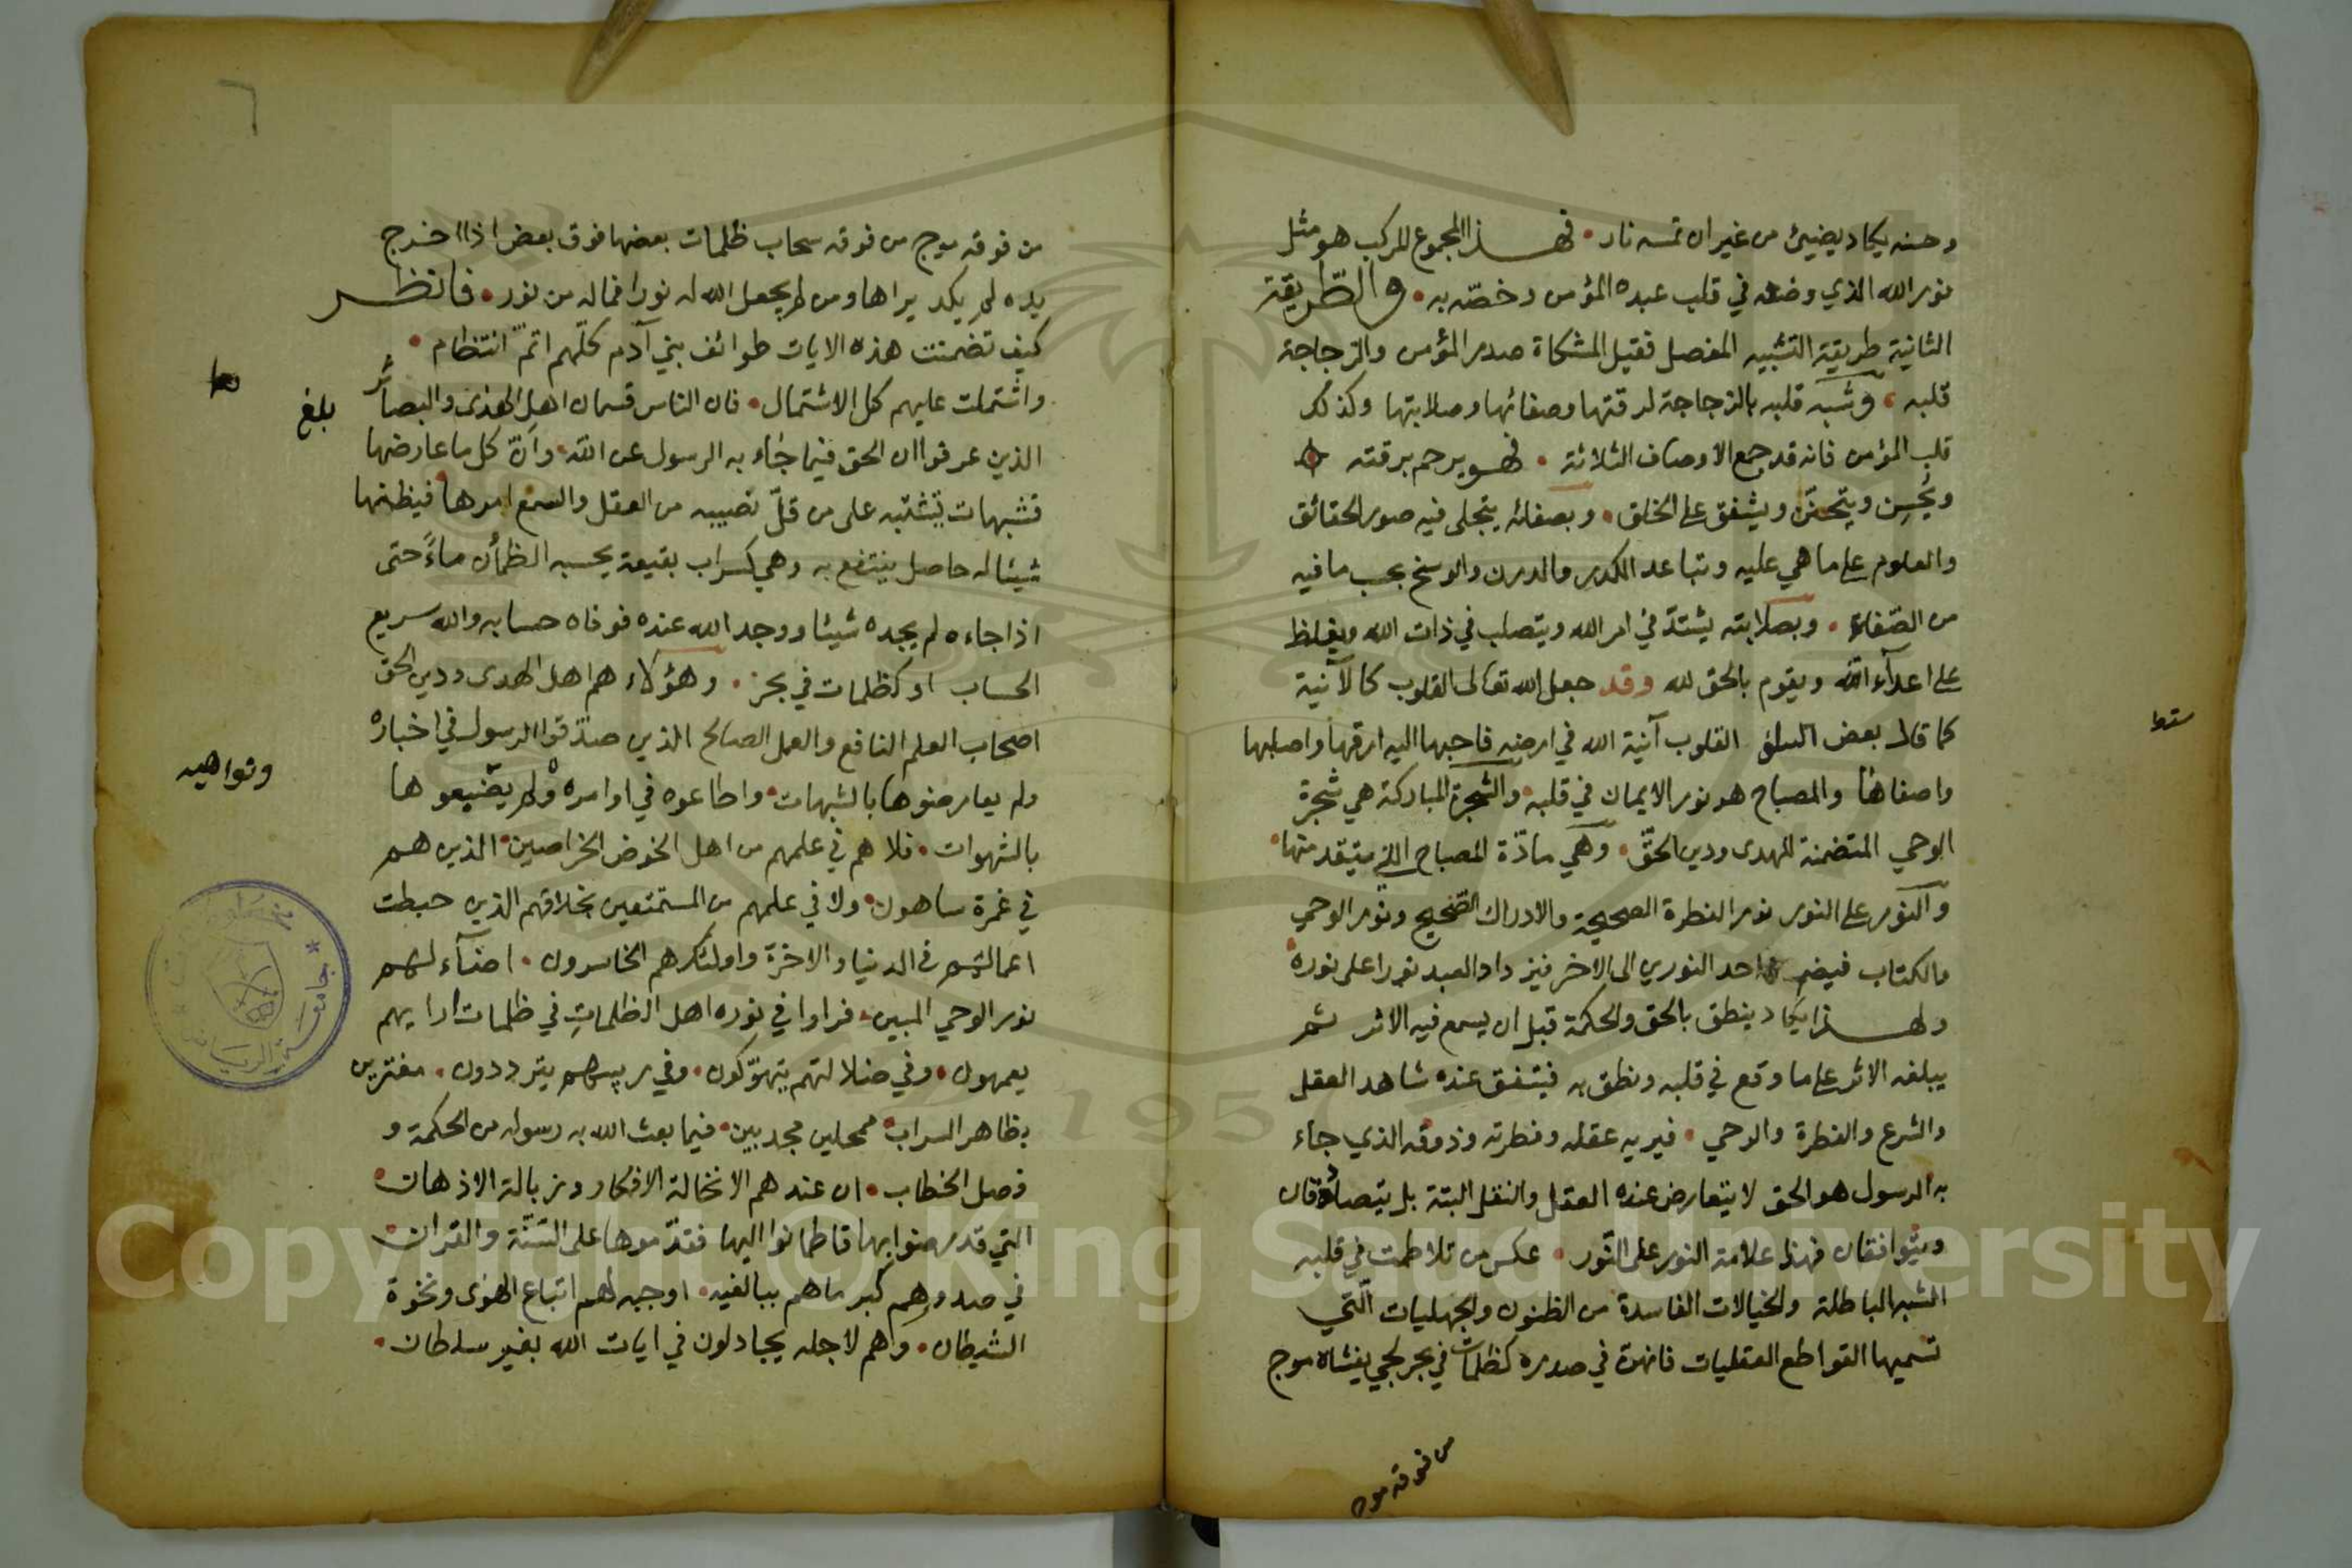 وحسنه يكاد يضيئ من غير ان تمسه نار • فهذا المجموع المركب هو مثل
نور الله الذي وضعه في قلب عبده المؤمن وخصّه به • والطّريقة
الثانية طريقة التشبيه المفصل فقيل المشكاة صدر المؤمن والزجاجة
قلبه • وشبه قلبه بالزجاجة لرقتها وصفائها وصلابتها وكذلك
قلب المؤمن فانه قد جمع الاوصاف الثلاثة • فهو يرحم برقته
ويُحسِن ويتحنّن ويشفق على الخلق • وبصفائه يتجلى فيه صور الحقائق
والعلوم على ما هي عليه وتباعد الكدر والدرن والوسخ بحسب ما فيه
من الصّفاء • وبصلابته يشتدّ في امر الله ويتصلب في ذات الله ويغلظ
على اعدآء الله ويقوم بالحق لله وقد جعل الله تعالى القلوب كالآنية
كما قال بعض السلف القلوب آنية الله في ارضه فاحبها اليه ارقها واصلبها
سقط
واصفاها والمصباح هو نور الايمان في قلبه والشجرة المباركة هي شجرة
الوحي المتضمنة للهدى ودين الحقّ • وهي مادّة المصباح التي يتقد منها •
والنّور على النور نور الفطرة الصحيحة والادراك الصّحيح ونور الوحي
والكتاب فيضم احد النورين الى الاخر فيزداد العبد نورا على نوره
ولهذا يكاد ينطق بالحق والحكمة قبل ان يسمع فيه الاثر ثم
يبلغه الاثر على ما وقع في قلبه ونطق به فيتفق عنده شاهد العقل
والشرع والفطرة والوحي • فيريه عقله وفطرته وذوقه الذي جاء
به الرسول هو الحق لا يتعارض عنده العقل والنقل البتة بل يتصادقان
ويتوافقان فهذا علامة النور على النّور • عكس من تلاطمت في قلبه
الشبه الباطلة والخيالات الفاسدة من الظنون والجهليات الّتي
تسميها القواطع العقليات فانه في صدره كظلمات في بحر لجي يغشاه موج
من فوقه موج
٦
من فوقه موج من فوقه سحاب ظلمات بعضها فوق بعض اذا اخرج
يده لم يكد يراها ومن لم يجعل الله له نورا فماله من نور • فانظر
كيف تضمنت هذه الايات طوائف بني آدم كلّهم اتمّ انتظام •
واشتملت عليهم كل الاشتمال • فان الناس قسمان اهل الهدى والبصائر
بلغ
الذين عرفوا ان الحق فيما جاء به الرسول عن الله • وانّ كل ما عارضها
فشبهات يشتبه على من قلّ نصيبه من العقل والسمع امرها فيظنها
شيئا له حاصل ينتفع به وهي كسراب بقيعة يحسبه الظمأن ماءً حتى
اذا جاءه لم يجده شيئا ووجد الله عنده فوفاه حسابه والله سريع
الحساب او كظلمات في بحر • وهؤلاء هم اهل الهدى ودين الحق
اصحاب العلم النافع والعمل الصالح الذين صدّقوا الرسول في اخباره
ولم يعارضوها بالشبهات • واطاعوه في اوامره ولم يضّيعوها
ونواهيه
بالشهوات • فلا هم في علمهم من اهل الخوض الخراصين • الذين هم
في غمرة ساهون • ولا في علمهم من المستمتعين بخلاقهم الذين حبطت
اعمالهم في الدنيا والاخرة واولئك هم الخاسرون • اضآء لهم
نور الوحي المبين • فراوا في نوره اهل الظلماتِ في ظلمات ارايهم
يعمهون • وفي ضلالتهم يتهوّكون • وفي ريبهم يترددون • مغترين
بظاهر السراب • ممحلين مجدبين • فيما بعث الله به رسوله من الحكمة و
فصل الخطاب • ان عندهم الا نخالة الافكار وزبالة الاذهان •
التي قد رضوا بها واطمانوا اليها فقدّموها على السّنّة والقران •
في صدورهم كبر ما هم ببالغيه • اوجبه لهم اتباع الهوى ونخوة
الشيطان • وهم لاجله يجادلون في ايات الله بغير سلطان •
Copyright © King Saud University
1957